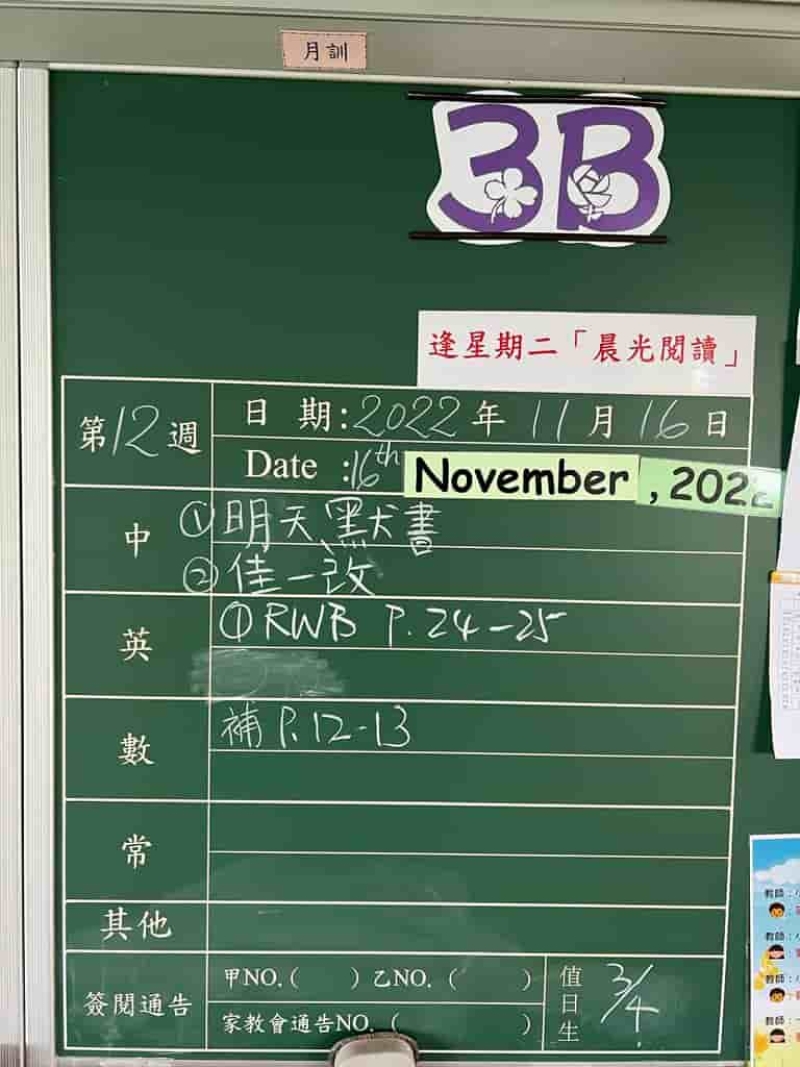 月訓
3B
逢星期二「晨光閱讀」
第12週
日 期:2022年11月16日
Date :16th November , 2022
中
①明天默書
②佳一改
英
①RWB P.24-25
數
補P.12-13
常
其他
簽閱通告
甲NO.( ) 乙NO.( )
家教會通告NO.( )
值日生 3/4
教師:
教師:
教師:
教師: